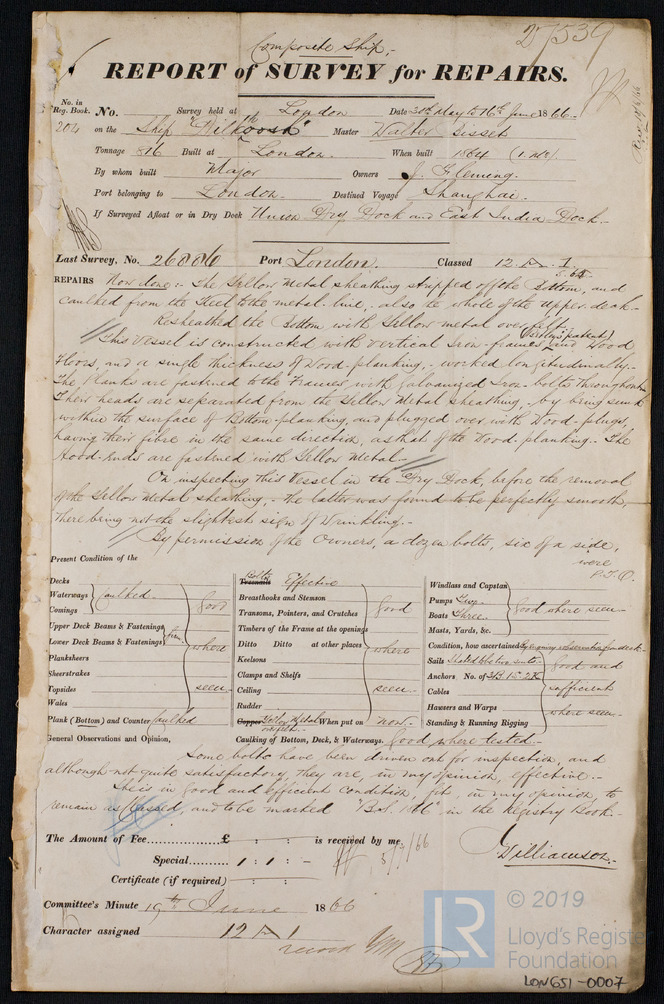 27539
Composite Ship,-
REPORT of SURVEY for REPAIRS.
No. in Reg. Book.
No. Survey held at London Date 30th May to 16th June 1866.
204 on the Ship "Dilkoosh" Master Walter Bisset
Tonnage 816 Built at London. When built 1864
By whom built Major Owners J. Fleming.
Port belonging to London. Destined Voyage Shanghai.
If Surveyed Afloat or in Dry Dock Union Dry Dock and East India Dock.
Last Survey, No. 26886 Port London. Classed 12 A 1
REPAIRS Now done:- The Yellow Metal sheathing stripped off the Bottom, and
caulked from the Keel to the metal line,- also the whole of the upper deck.-
Resheathed the Bottom with Yellow metal over felt.-
This Vessel is constructed with vertical Iron-frames and Wood
Floors, and a single thickness of Wood-planking,- worked longitudinally.-
The Planks are fastened to the Frames with galvanized Iron-bolts throughout.
Their heads are separated from the Yellow Metal sheathing,- by being sunk
within the surface of Bottom-planking, and plugged over with Wood-plugs,
having their fibre in the same direction, as that of the Wood-planking.- The
Hood-ends are fastened with Yellow Metal.-
On inspecting this Vessel in the Dry Dock, before the removal
of the Yellow Metal sheathing,- the latter was found to be perfectly smooth,
there being not the slightest sign of Wrinkling.-
By permission of the Owners, a dozen bolts, six of a side,
were
P.T.O.
Present Condition of the
Decks
Waterways
Comings
caulked good
Upper Deck Beams & Fastenings
Lower Deck Beams & Fastenings
where
Planksheers
Sheerstrakes
Topsides seen.
Wales
Plank (Bottom) and Counter caulked
Treenails Bolts Effective
Breasthooks and Stemson
Transoms, Pointers, and Crutches good
Timbers of the Frame at the openings
Ditto Ditto at other places where
Keelsons
Clamps and Shelfs
Ceiling seen.
Rudder
Copper Yellow Metal on felt. When put on now.
Caulking of Bottom, Deck, & Waterways. Good where tested.-
Windlass and Capstan
Pumps Two
Boats Three
Masts, Yards, &c.
good where seen
Condition, how ascertained By enquiry & observation from deck
Sails
Anchors No. of
Cables
Hawsers and Warps
Standing & Running Rigging
good and
sufficient
where seen.
General Observations and Opinion,
Some bolts have been driven out for inspection, and
although not quite satisfactory, they are, in my opinion, effective.-
She is in good and efficient condition, fit, in my opinion to
remain as Classed, and to be marked "Bot. 1866" in the Registry Book.-
The Amount of Fee £ : : is received by me,
Special 1 : 1 : - 5/7/66
Certificate (if required) : :
J. Williamson.
Committee's Minute 19th June 1866
Character assigned 12 A 1
© 2019
LR
Lloyd's Register
Foundation
LON651-0007